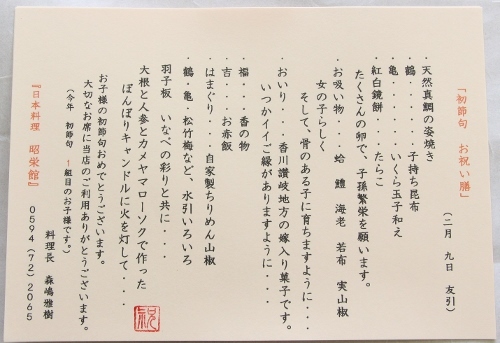 「初節句　お祝い膳」　（二月　九日　友引）
・天然真鯛の姿焼き
・鶴・・・・・・子持ち昆布
・亀・・・・・・いくら玉子和え
・紅白鏡餅・・・・たらこ
たくさんの卵で、子孫繁栄を願います。
・お吸い物・・・蛤　鱧　海老　若布　実山椒
女の子らしく
そして、骨のある子に育ちますように・・・・
・おいり・・・香川讃岐地方の嫁入り菓子です。
いつかイイご縁がありますように・・・・
・福・・・香の物
・吉・・・お赤飯
・はまぐり・・・自家製ちりめん山椒
・鶴・亀・松竹梅など、水引いろいろ
羽子板　いなべの彩りと共に・・・
大根と人参とカメヤマローソクで作った
ぼんぼりキャンドルに火を灯して・・・・
お子様の初節句おめでとうございます。
大切なお席に当店のご利用ありがとうございます。
（今年　初節句　１組目のお子様です。）
料理長　森嶋雅樹
『日本料理　昭栄館』　０５９４（７２）２０６５